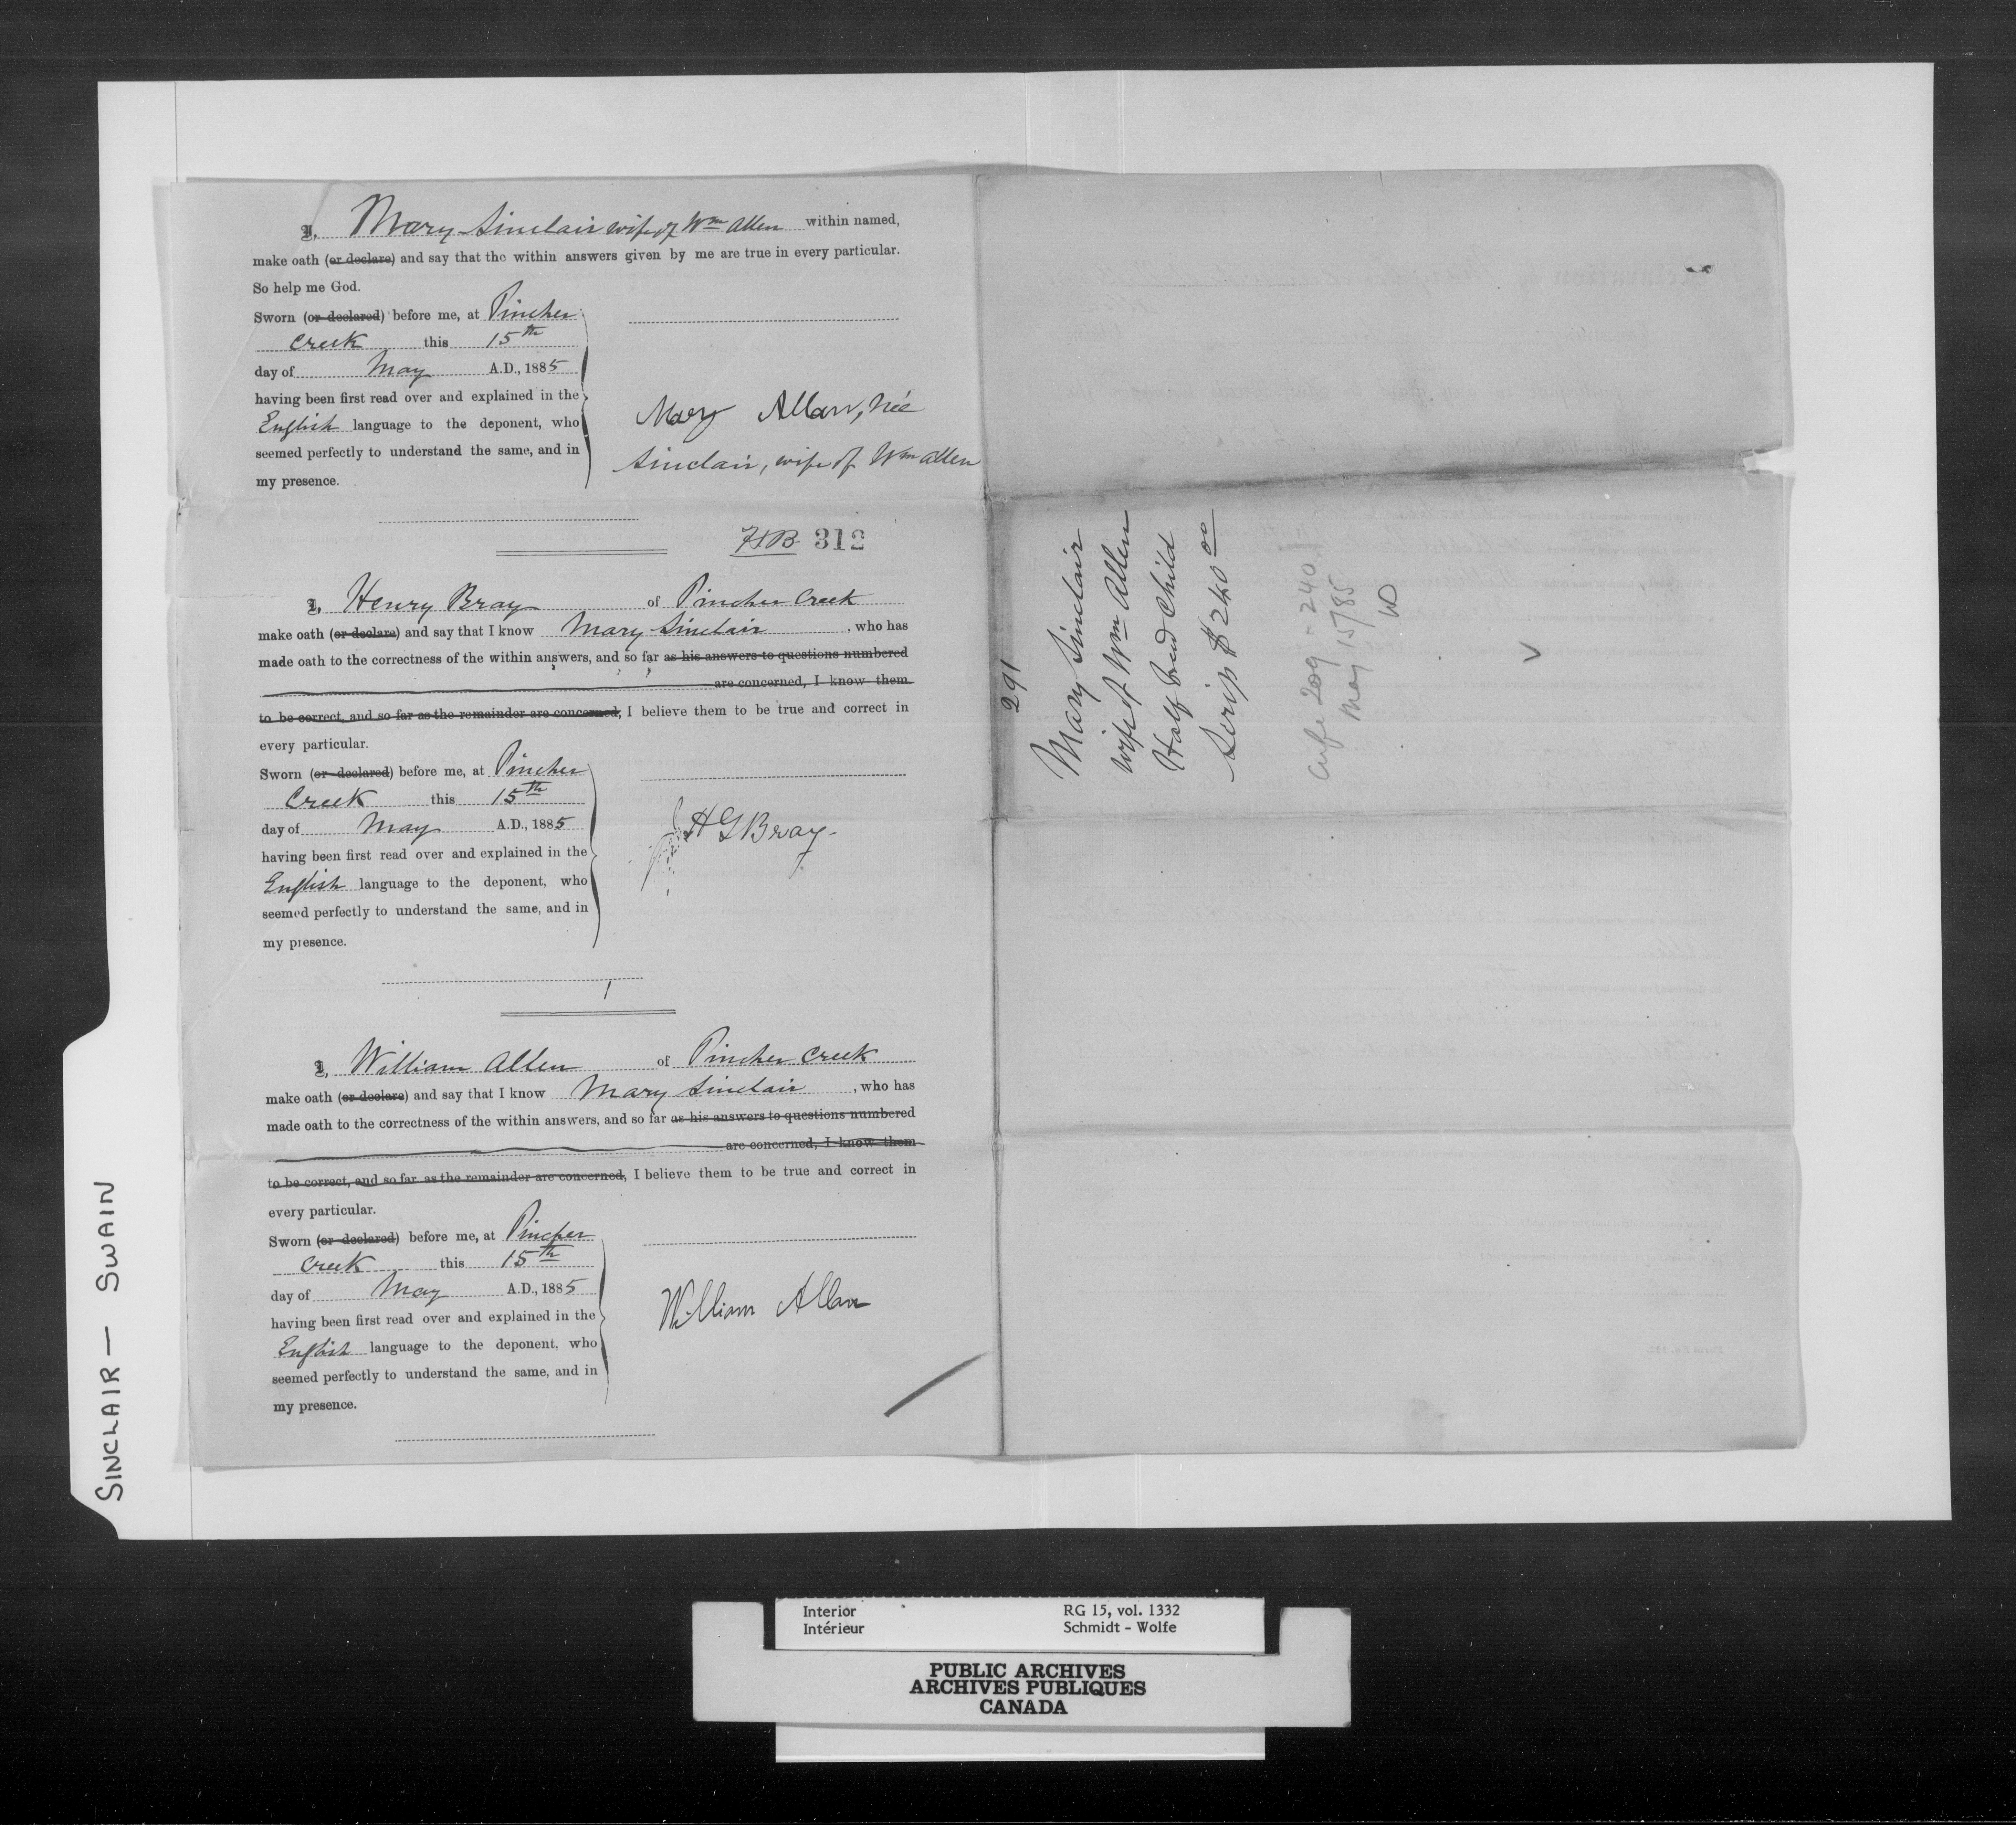 I, Mary Sinclair wife of Wm Allen within named,
make oath (or declare) and say that the within answers given by me are true in every particular.
So help me God.
Sworn (or declared) before me, at Pincher
Creek this 15th
day of May A.D., 1885
having been first read over and explained in the
English language to the deponent, who
seemed perfectly to understand the same, and in
my presence.
Mary Allan, née
Sinclair, wife of Wm Allen
HB 312
I, Henry Bray of Pincher Creek
make oath (or declare) and say that I know Mary Sinclair, who has
made oath to the correctness of the within answers, and so far as his answers to questions numbered
are concerned, I know them
to be correct, and so far as the remainder are concerned, I believe them to be true and correct in
every particular.
Sworn (or declared) before me, at Pincher
Creek this 15th
day of May A.D., 1885
having been first read over and explained in the
English language to the deponent, who
seemed perfectly to understand the same, and in
my presence.
H G Bray
I, William Allen of Pincher Creek
make oath (or declare) and say that I know Mary Sinclair, who has
made oath to the correctness of the within answers, and so far as his answers to questions numbered
are concerned, I know them
to be correct, and so far as the remainder are concerned, I believe them to be true and correct in
every particular.
Sworn (or declared) before me, at Pincher
Creek this 15th
day of May A.D., 1885
having been first read over and explained in the
English language to the deponent, who
seemed perfectly to understand the same, and in
my presence.
William Allan
291
Mary Sinclair
wife of Wm Allen
Half breed Child
Scrip $240 00
209 - 240
May 15/85
SINCLAIR — SWAIN
Interior
Intérieur
RG 15, vol. 1332
Schmidt - Wolfe
PUBLIC ARCHIVES
ARCHIVES PUBLIQUES
CANADA